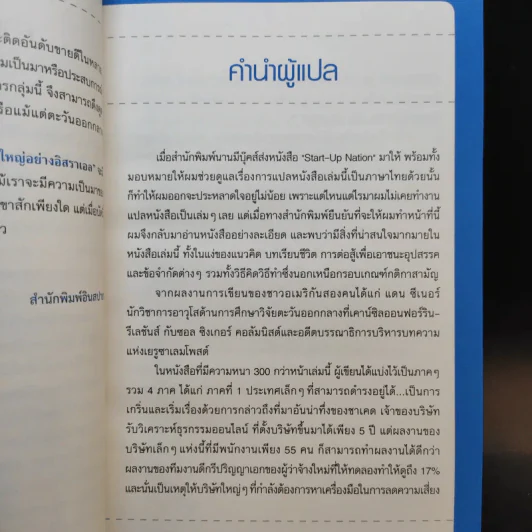 ะติดอันดับขายดีในหลาย
มเป็นมาหรือประสบการ
รกลุ่มนี้ จึงสามารถดึงดู
รือแม้แต่ตะวันออกกลาง
ใหญ่อย่างอิสราเอล"
มีเราจะมีความเป็นมาข
ขาสักเพียงใด แต่เมื่อ
ว
สำนักพิมพ์อินสปา
คำนำผู้แปล
เมื่อสำนักพิมพ์นานมีบุ๊คส์ส่งหนังสือ "Start-Up Nation" มาให้ พร้อมทั้ง
มอบหมายให้ผมช่วยดูแลเรื่องการแปลหนังสือเล่มนี้เป็นภาษาไทยด้วยนั้น
ก็ทำให้ผมออกจะประหลาดใจอยู่ไม่น้อย เพราะแต่ไหนแต่ไรมาผมไม่เคยทำงาน
แปลหนังสือเป็นเล่มๆ เลย แต่เมื่อทางสำนักพิมพ์ยืนยันที่จะให้ผมทำหน้าที่นี้
ผมจึงกลับมาอ่านหนังสืออย่างละเอียด และพบว่ามีสิ่งที่น่าสนใจมากมายใน
หนังสือเล่มนี้ ทั้งในแง่ของแนวคิด บทเรียนชีวิต การต่อสู้เพื่อเอาชนะอุปสรรค
และข้อจำกัดต่างๆ รวมทั้งวิธีคิดวิธีทำซึ่งนอกเหนือกรอบเกณฑ์กติกาสามัญ
จากผลงานการเขียนของชาวอเมริกันสองคนได้แก่ แดน ซีเนอร์
นักวิชาการอาวุโสด้านการศึกษาวิจัยตะวันออกกลางที่เคาน์ซิลออนฟอร์ริน-
รีเลชันส์ กับซอล ซิงเกอร์ คอลัมนิสต์และอดีตบรรณาธิการบริหารบทความ
แห่งเยรูซาเลมโพสต์
ในหนังสือที่มีความหนา 300 กว่าหน้าเล่มนี้ ผู้เขียนได้แบ่งไว้เป็นภาคๆ
รวม 4 ภาค ได้แก่ ภาคที่ 1 ประเทศเล็กๆ ที่สามารถดำรงอยู่ได้...เป็นการ
เกริ่นและเริ่มเรื่องด้วยการกล่าวถึงที่มาอันน่าทึ่งของชาเคด เจ้าของบริษัท
รับวิเคราะห์ธุรกรรมออนไลน์ ที่ตั้งบริษัทขึ้นมาได้เพียง 5 ปี แต่ผลงานของ
บริษัทเล็กๆ แห่งนี้ที่มีพนักงานเพียง 55 คน ก็สามารถทำผลงานได้ดีกว่า
ผลงานของทีมงานดีกรีปริญญาเอกของผู้ว่าจ้างใหม่ที่ให้ทดลองทำให้ดูถึง 17%
และนั่นเป็นเหตุให้บริษัทใหญ่ๆ ที่กำลังต้องการหาเครื่องมือในการลดความเสี่ยง